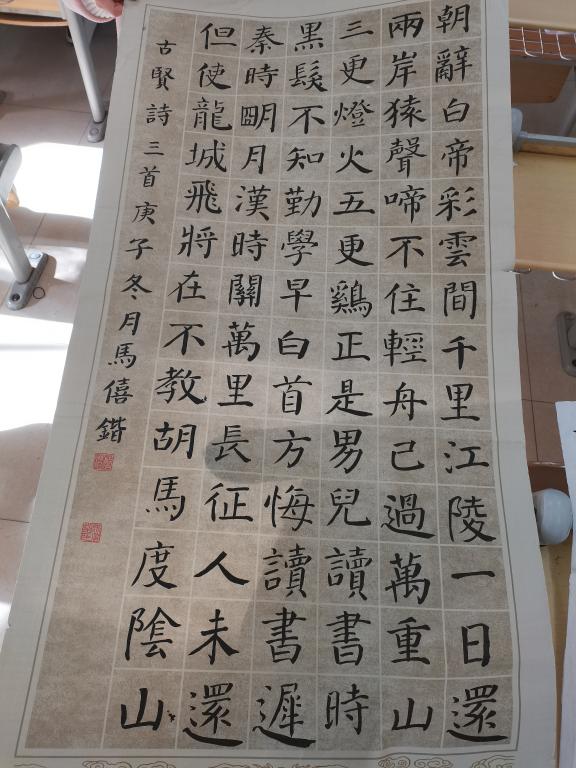 朝辭白帝彩雲間千里江陵一日還
兩岸猿聲啼不住輕舟己過萬重山
三更燈火五更鷄正是男兒讀書時
黑髮不知勤學早白首方悔讀書遲
秦時朙月漢時關萬里長征人未還
但使龍城飛將在不教胡馬度陰山
古賢詩三首庚子冬月馬僖鍇